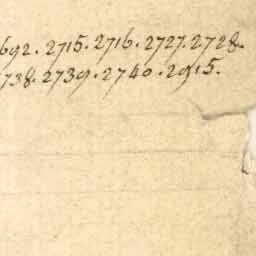 692. 2715. 2716. 2727. 2728.
738. 2739. 2740. 2915.